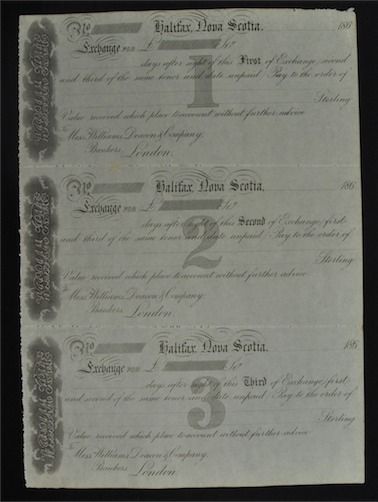 No Halifax, Nova Scotia. 186
Exchange FOR £ Stg
days after sight of this First of Exchange, second
and third of the same tenor and date unpaid. Pay to the order of
Sterling
Value received which place to account without further advice
To Mess. Williams, Deacon & Company,
Bankers, London.
1
No Halifax, Nova Scotia. 186
Exchange FOR £ Stg
days after sight of this Second of Exchange, first
and third of the same tenor and date unpaid. Pay to the order of
Sterling
Value received which place to account without further advice
To Mess. Williams, Deacon & Company,
Bankers, London.
2
No Halifax, Nova Scotia. 186
Exchange FOR £ Stg
days after sight of this Third of Exchange, first
and second of the same tenor and date unpaid. Pay to the order of
Sterling
Value received which place to account without further advice
To Mess. Williams, Deacon & Company,
Bankers, London.
3